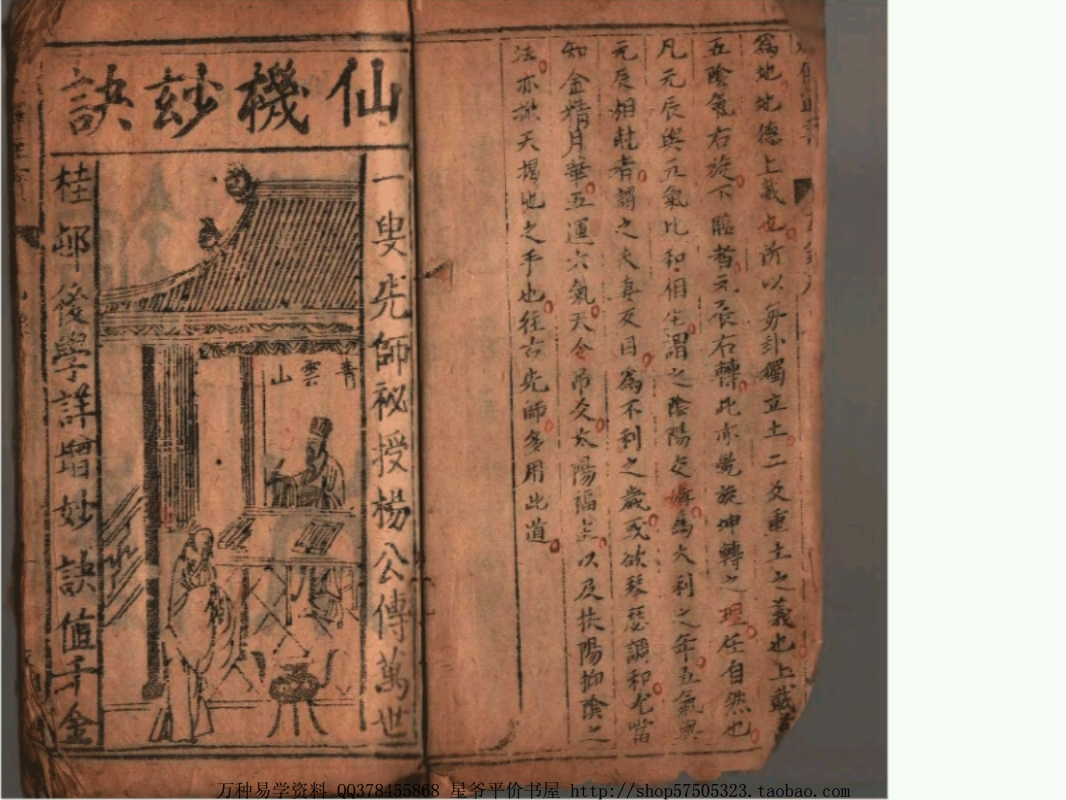 為地地德上載也所以每卦獨立土二爻重土之義也上載
五陰氣右旋下臨者元辰右轉此亦乾旋坤轉之理任自然也
凡元辰與元氣比和相生謂之陰陽交媾為大利之年五氣與
元辰相尅者謂之夫妻反目為不利之歲或欲琴瑟調和尤當
知金精月華五運六氣天令吊爻太陽福星以及扶陽抑陰之
法亦掀天揭地之手也往古先師多用此道
仙機玅訣
一叟先師祕授楊公傳萬世
青雲山
桂邨後學詳增妙訣值千金
万种易学资料 QQ378455868 星爷平价书屋 http://shop57505323.taobao.com/